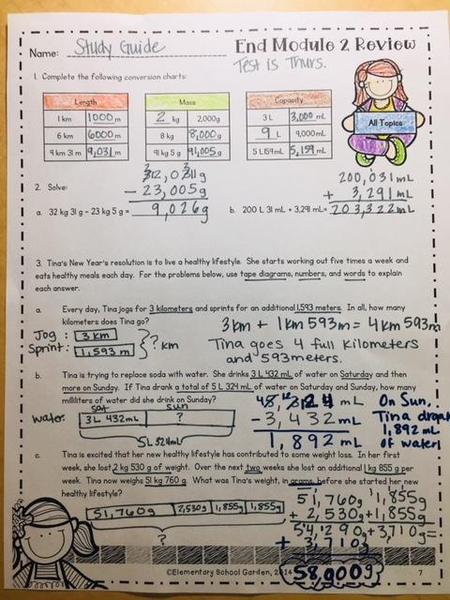 Name: Study Guide
End Module 2 Review
Test is Thurs.
1. Complete the following conversion charts:
Length
1 km 1000 m
6 km 6000 m
9 km 31 m 9,031 m
Mass
2 kg 2,000g
8 kg 8,000 g
91 kg 5 g 91,005 g
Capacity
3 L 3,000 mL
9 L 9,000mL
5 L 159 mL 5,159 mL
All Topics
2. Solve:
a. 32 kg 31 g – 23 kg 5 g =
- 23,005g
9,026g
b. 200 L 31 mL + 3,291 mL=
200,031 mL
+ 3,291 mL
203,322 mL
3. Tina's New Year's resolution is to live a healthy lifestyle. She starts working out five times a week and
eats healthy meals each day. For the problems below, use tape diagrams, numbers, and words to explain
each answer.
a. Every day, Tina jogs for 3 kilometers and sprints for an additional 1,593 meters. In all, how many
kilometers does Tina go?
Jog: 3 km
Sprint: 1,593 m
? km
3km + 1km 593m = 4km 593m
Tina goes 4 full kilometers
and 593 meters.
b. Tina is trying to replace soda with water. She drinks 3 L 432 mL of water on Saturday and then
more on Sunday. If Tina drank a total of 5 L 324 mL of water on Saturday and Sunday, how many
milliliters of water did she drink on Sunday?
water:
sat sun
3L 432mL ?
5L 324mL
- 3,432 mL
1,892 mL
On Sun.
Tina drank
1,892 mL
of water!
c. Tina is excited that her new healthy lifestyle has contributed to some weight loss. In her first
week, she lost 2 kg 530 g of weight. Over the next two weeks she lost an additional 1 kg 855 g per
week. Tina now weighs 51 kg 760 g. What was Tina's weight, in grams, before she started her new
healthy lifestyle?
51,760g 2,530g 1,855g 1,855g
?
51,760g
+ 2,530g
54,290g
+ 3,710g
58,000g
1,855g
+1,855g
3,710g
©Elementary School Garden, 2014
7